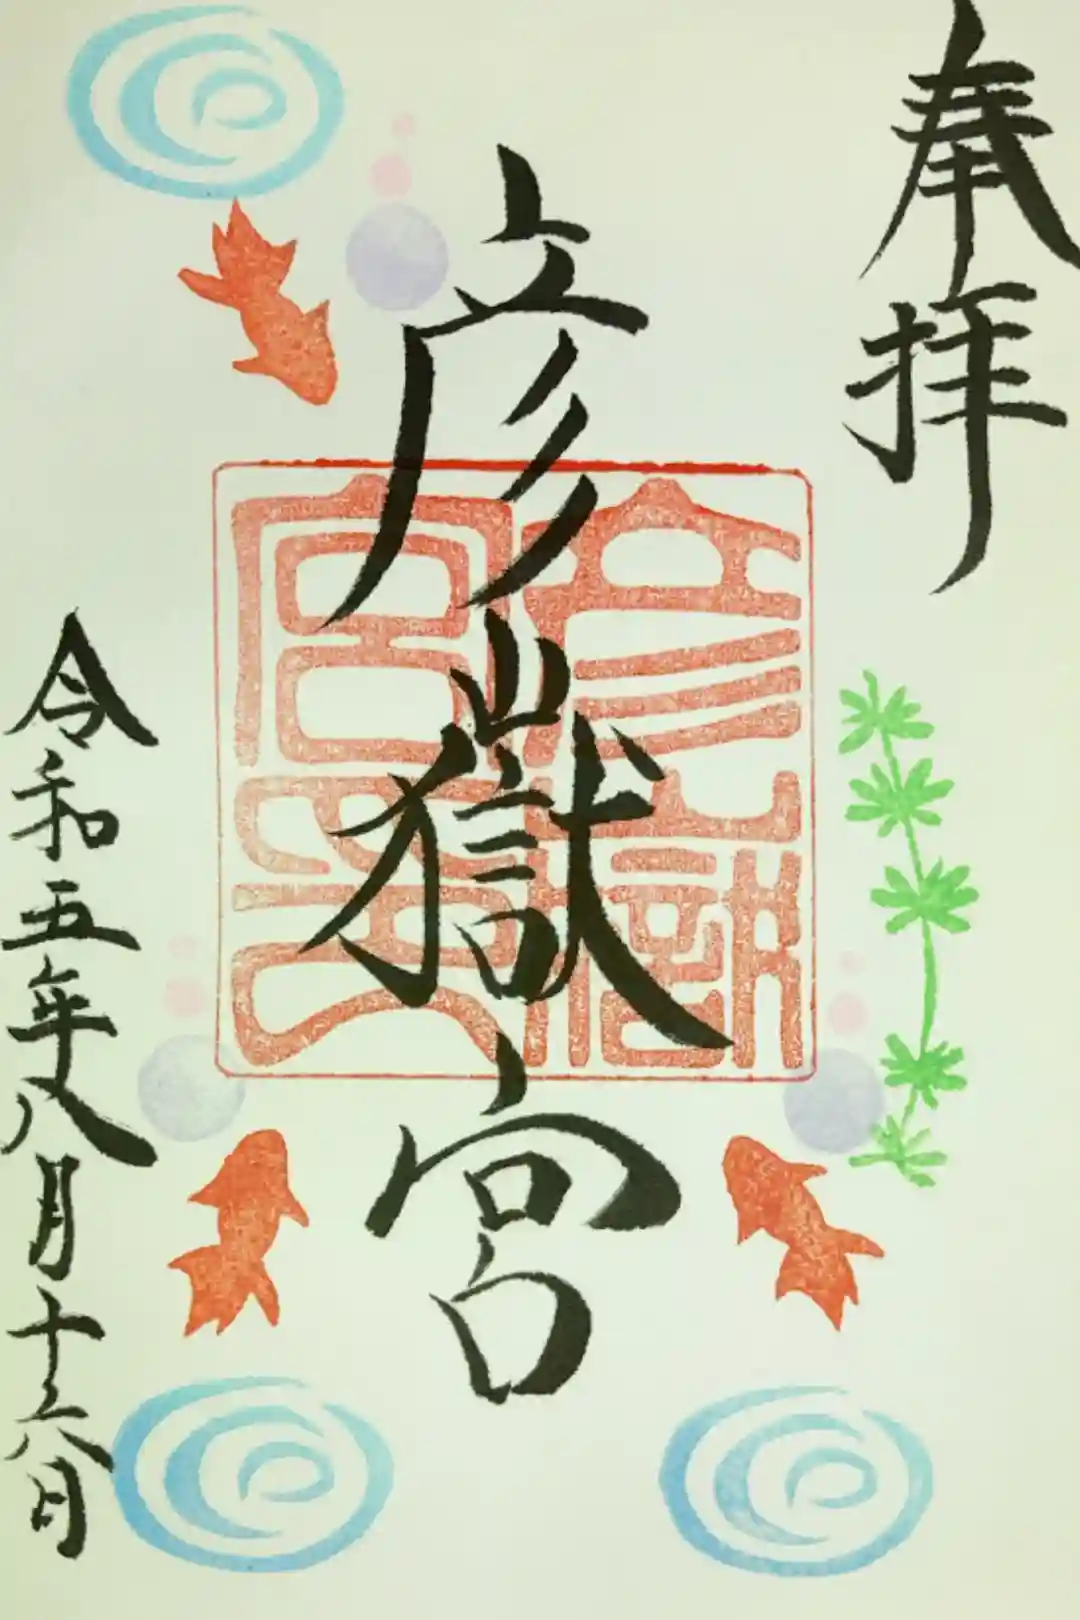 奉拝
彦嶽宮
彦嶽宮印
令和五年八月十六日